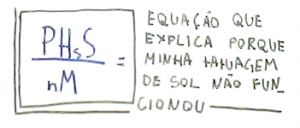 PHsS
nM
=
EQUAÇÃO QUE
EXPLICA PORQUE
MINHA TATUAGEM
DE SOL NÃO FUN
CIONOU